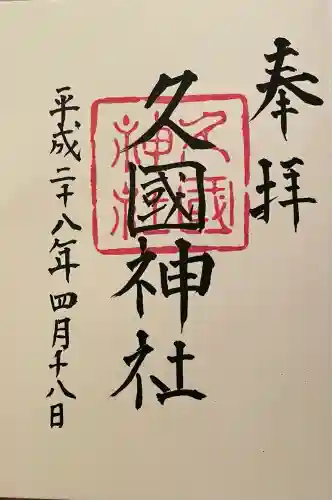 奉拝
久國神社
久國
神社
平成二十八年四月十八日